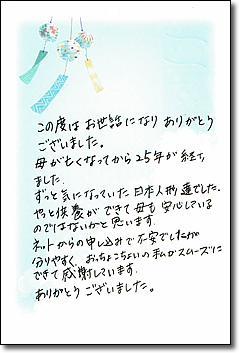 この度は お世話になり ありがとう
ございました。
母が亡くなってから２５年が経ち
ました。
ずっと気になっていた日本人形達でした。
やっと供養ができて母も安心している
のではないかと思います。
ネットからの申し込みで不安でしたが
分りやすく、おっちょこちょいの私がスムーズに
できて感謝しています。
ありがとうございました。